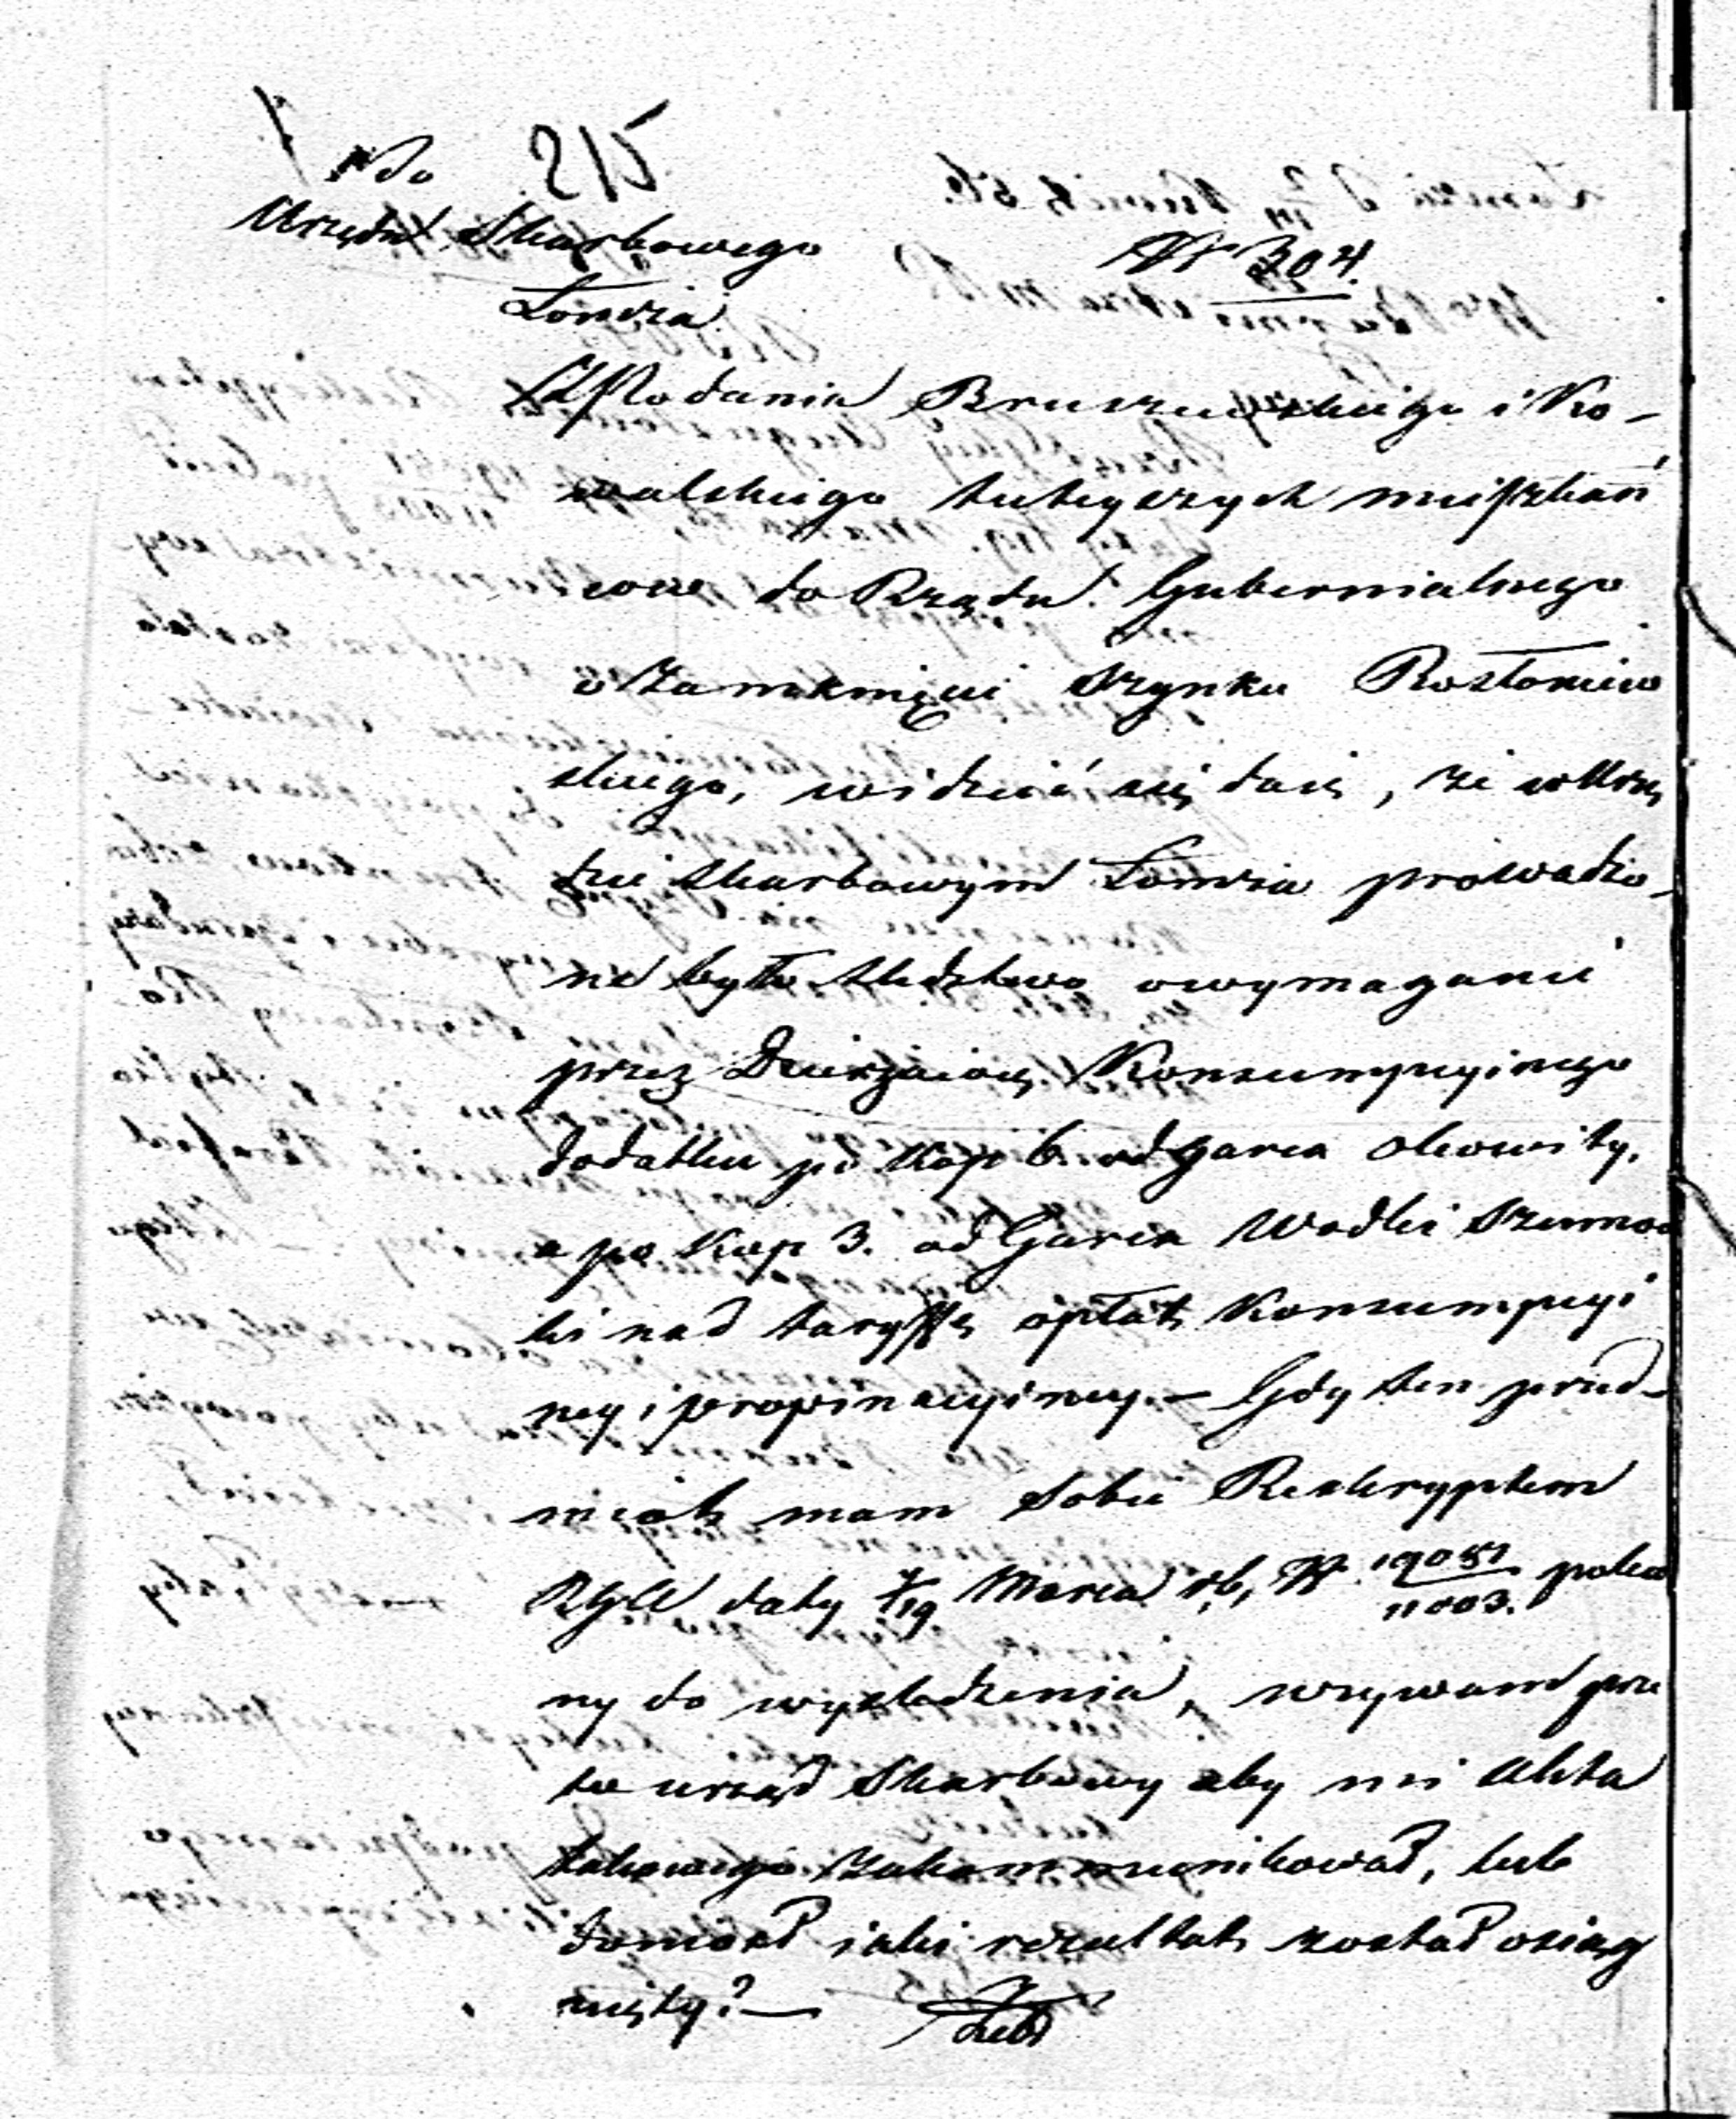 Do
Urzędu Skarbowego
N 304.
Łomża
Z Podania Bruszewskiego i Ko-
walskiego tuteyszych mieszkań
cow do Rządu Gubernialnego
o Zamknięcie Szynku Rostoniew
skiego, widzieć się daie, że w Urzę
dzie Skarbowym Łomża prowadzo-
ne było śledztwo o wymaganie
przez Dzierżawcę Konsumpcyinego
dodatku po kop 6. od garca okowity,
a po Kop 3. od Garca Wodki Szumow
ki nad taryffę opłat Konsumpcyi
ney i propinacyiney. — Gdy ten przed-
miot mam sobie Reskryptem
RGA daty 7/19 Marca rb, N. 19051/11003. poleco
ny do wyśledzenia, wzywam prze
to urząd Skarbowy aby mi Akta
takowego zakommunikował, lub
doniósł iaki rezultat został osiąg
nięty? —